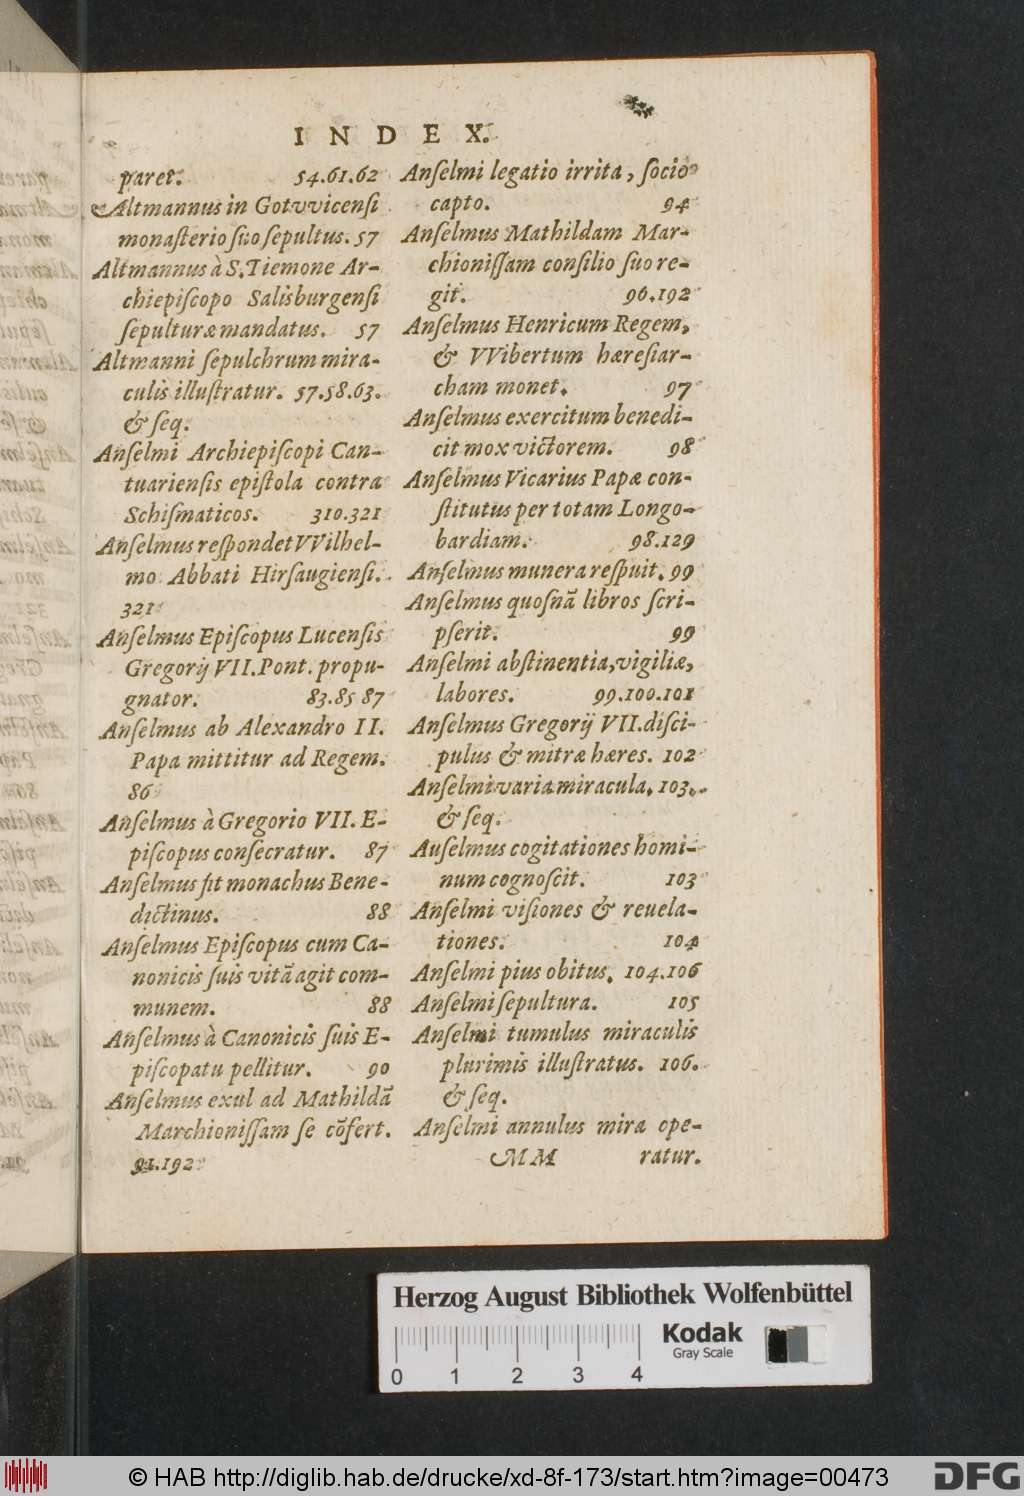 INDEX.
paret. 54.61.62
Altmannus in Gotvvicensi
monasterio suo sepultus. 57
Altmannus à S. Tiemone Ar-
chiepiscopo Salisburgensi
sepulturæ mandatus. 57
Altmanni sepulchrum mira-
culis illustratur. 57.58.63.
& seq.
Anselmi Archiepiscopi Can-
tuariensis epistola contra
Schismaticos. 310.321
Anselmus respondet VVilhel-
mo Abbati Hirsaugiensi.
321
Anselmus Episcopus Lucensis
Gregorij VII. Pont. propu-
gnator. 83.85 87
Anselmus ab Alexandro II.
Papa mittitur ad Regem.
86
Anselmus à Gregorio VII. E-
piscopus consecratur. 87
Anselmus fit monachus Bene-
dictinus. 88
Anselmus Episcopus cum Ca-
nonicis suis vitã agit com-
munem. 88
Anselmus à Canonicis suis E-
piscopatu pellitur. 90
Anselmus exul ad Mathildã
Marchionissam se cõfert.
91.192
Anselmi legatio irrita, socio
capto. 94
Anselmus Mathildam Mar-
chionissam consilio suo re-
git. 96.192
Anselmus Henricum Regem,
& VVibertum hæresiar-
cham monet. 97
Anselmus exercitum benedi-
cit mox victorem. 98
Anselmus Vicarius Papæ con-
stitutus per totam Longo-
bardiam. 98.129
Anselmus munera respuit. 99
Anselmus quosnã libros scri-
pserit. 99
Anselmi abstinentia, vigiliæ,
labores. 99.100.101
Anselmus Gregorij VII. disci-
pulus & mitræ hæres. 102
Anselmi varia miracula. 103.
& seq.
Auselmus cogitationes homi-
num cognoscit. 103
Anselmi visiones & reuela-
tiones. 104
Anselmi pius obitus. 104.106
Anselmi sepultura. 105
Anselmi tumulus miraculis
plurimis illustratus. 106.
& seq.
Anselmi annulus mira ope-
MM ratur.
Herzog August Bibliothek Wolfenbüttel
0 1 2 3 4
Kodak
Gray Scale
© HAB http://diglib.hab.de/drucke/xd-8f-173/start.htm?image=00473
DFG